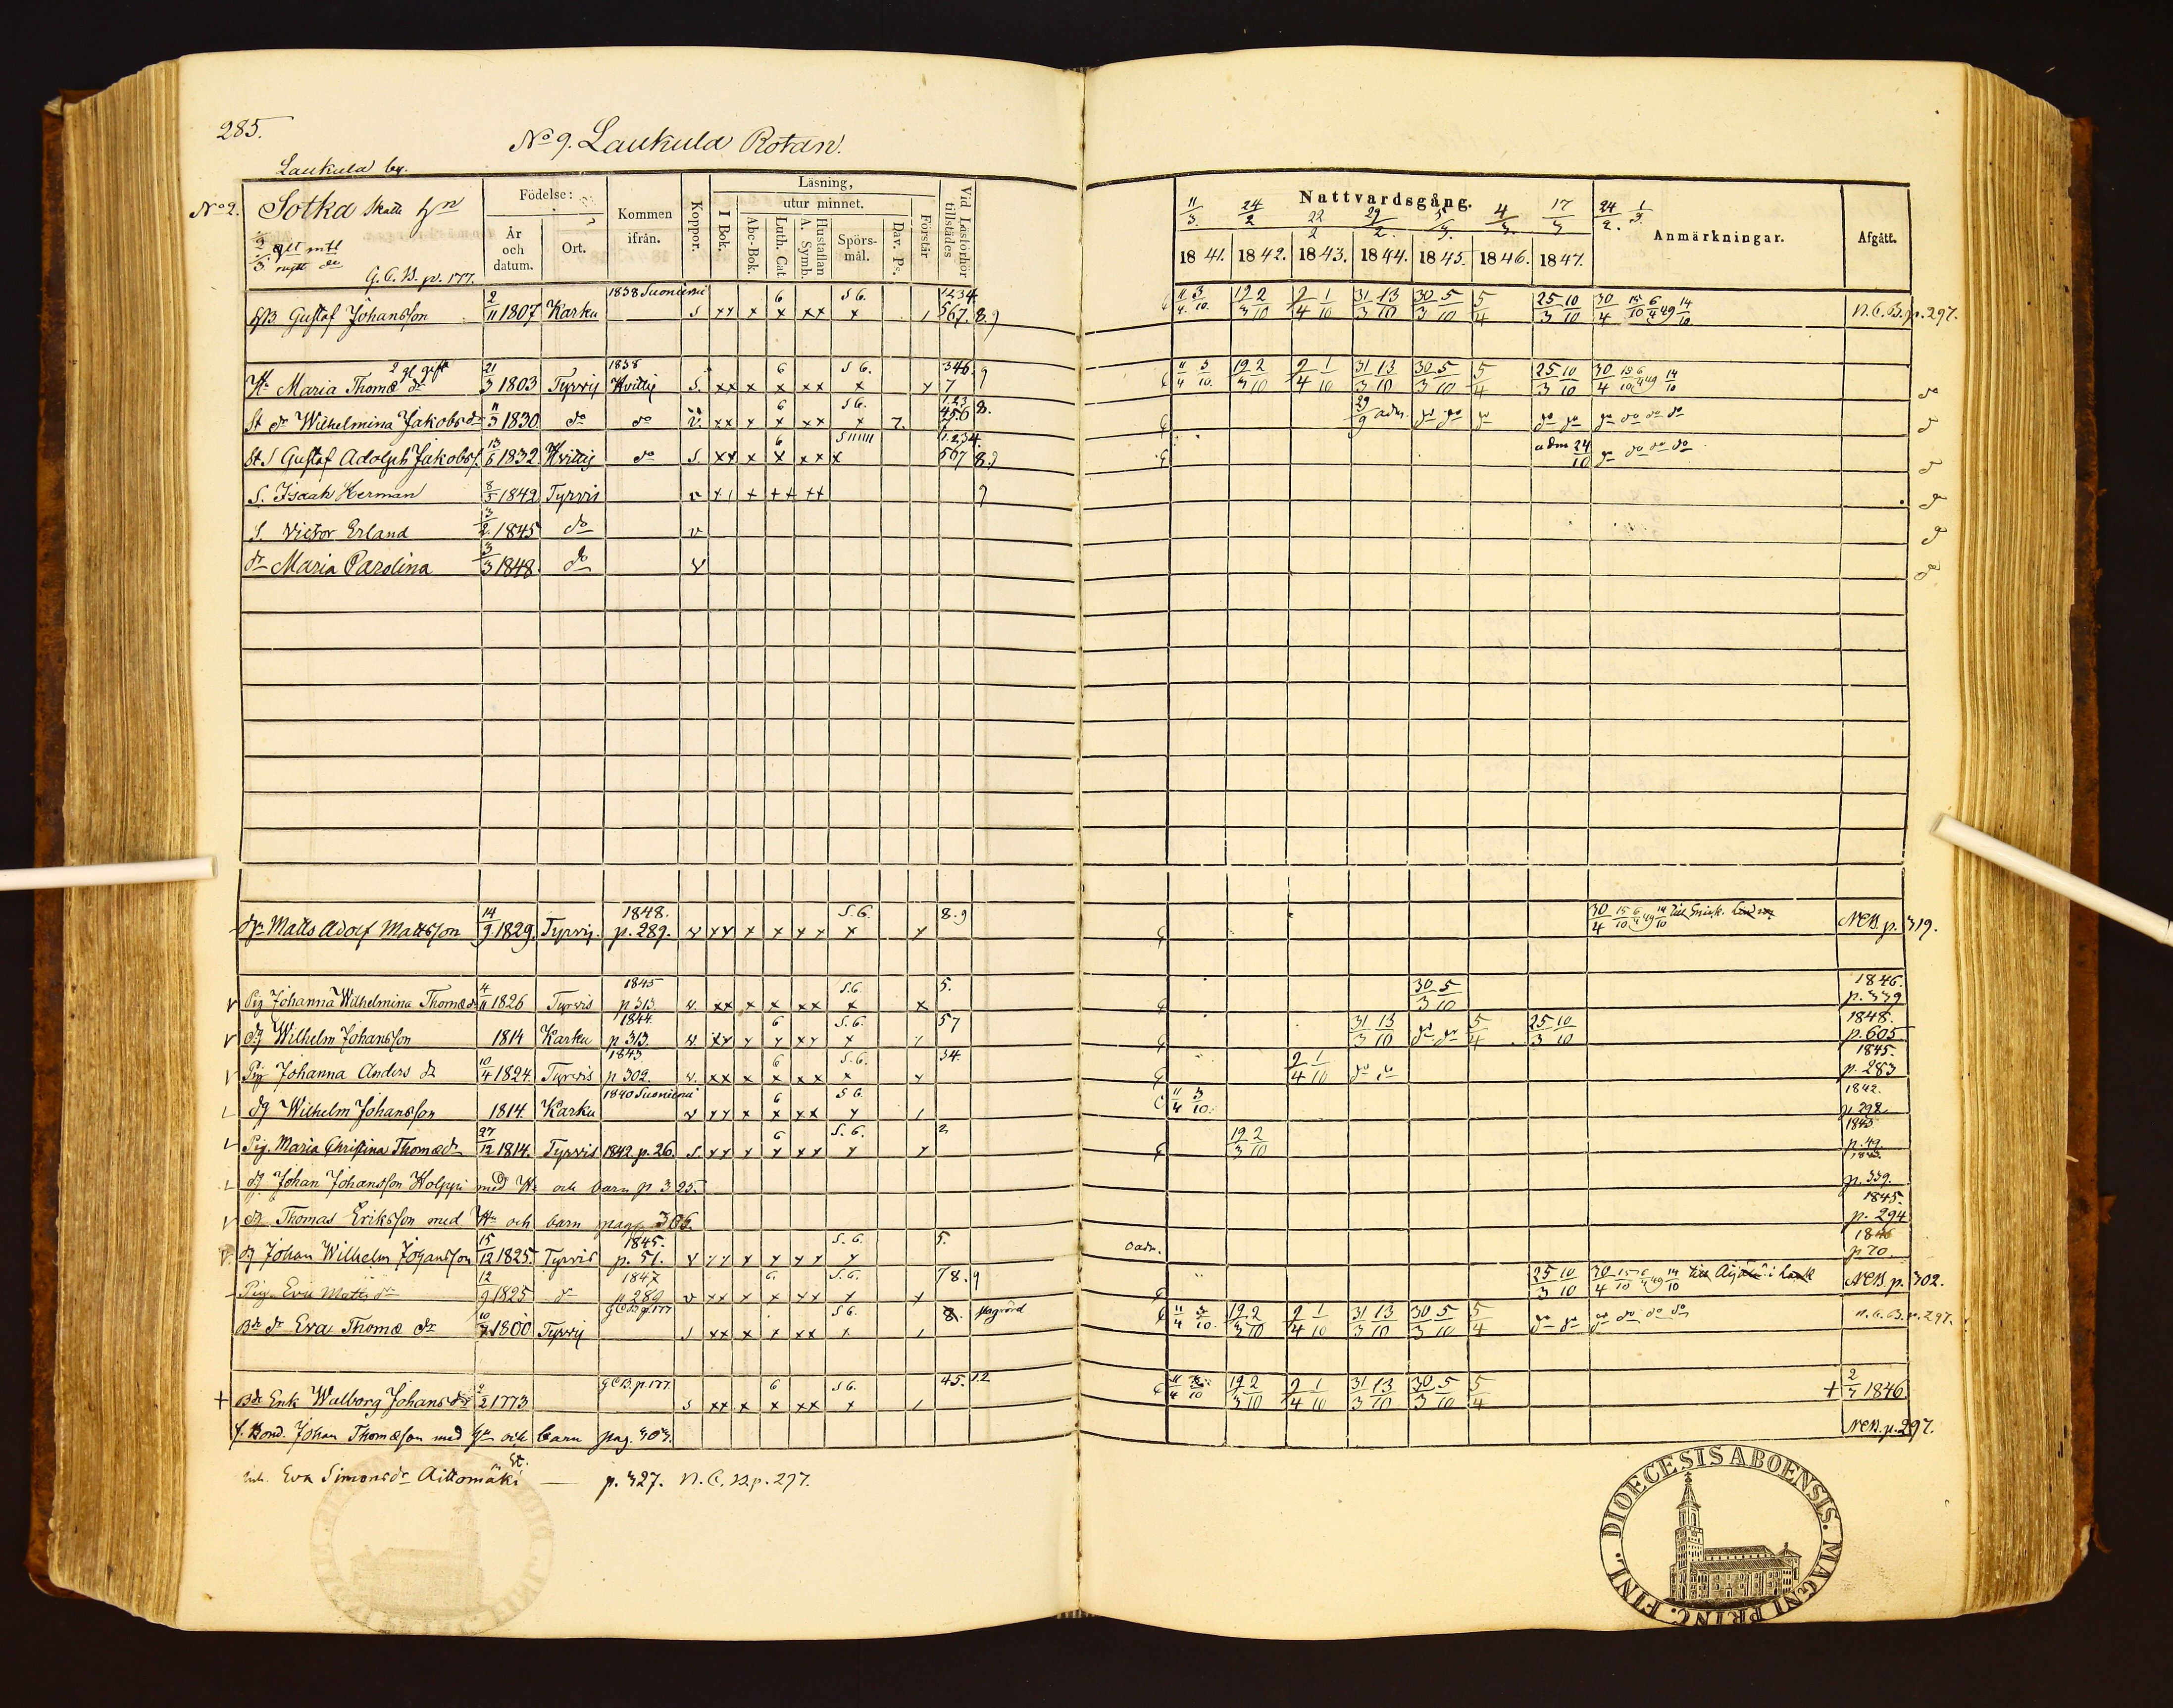 285.
No 9. Laukula Rotan.
Laukula by.
No 2. Sotka Skatte Hn
2/3 glt mtl
3 nytt do
G. C. B. p. 177.
Födelse:
År och datum.
Ort.
Kommen ifrån.
Koppor.
Läsning,
I Bok.
utur minnet.
Abc-Bok.
Luth. Cat.
Hustaflan A. Symb.
Spörs-mål.
Dav. Ps.
Förstår
Vid Läsförhör tillstädes
Nattvardsgång.
11/3. 24/2 22/2 29/2. 5/3. 4/3. 17/3 24/2. 1/3.
1841. 1842. 1843. 1844. 1845. 1846. 1847.
Anmärkningar.
Afgått.
HB. Gustaf Johansson 2/11 1807 Karku 1838 Suoniemi s xx x 6 x xx S 6. x 1234. 567. 8. 9 11/4 3/10. 19/3 2/10 2/4 1/10 31/3 13/10 30/3 5/10 5/4 25/3 10/10 30/4 15/10 6/4 49 14/10 N. C. B. p. 297.
2 gl. gift
Hu Maria Thomæ dr 21/3 1803 Tyrvis 1838 Hvittis s. xx x 6 x xx S 6. x x 346. 7 9 11/4 3/10. 19/3 2/10 2/4 1/10 31/3 13/10 30/3 5/10 5/4 25/3 10/10 30/4 15/10 6/4 49 14/10 do
St dr Wilhelmina Jakobs dr 11/3 1830 do do v. xx x 6 x xx S 6. x 7. 1.23 4567 8. 29/9 adm. do do do do do do do do do do
St. S Gustaf Adolph Jakobss. 13/6 1832 Hvittis do s. xx x 6 x xx x 1.2.34. 567 8. 9 adm 24/10 do do do do do
S. Isaak Herman 8/5 1842 Tyrvis v x 1 x xx xx 9 do
S. Victor Erland 3/2 1845 do v do
dr Maria Carolina 3/3 1848 do v do
Dr. Matts Adolf Mattsson 14/9 1829. Tyrvis. 1848. p. 289. v xx x x xx S. 6. x x 8. 9 30/4 15/10 6/4 49 14/10 NCB. p. 319.
v Pig Johanna Wilhelmina Thomæ dr 4/11 1826 Tyrvis 1845 p 313 v. xx x x xx S.6. x x 5. 30/3 5/10 1846. p. 339
v dg Wilhelm Johansson 1814 Karku 1844. p 313 v. xx x 6 x xx S. 6. x 57 31/3 13/10 do do 5/4 25/3 10/10 1848. p. 605
Pig Johanna Anders dr 10/4 1824. Tyrvis 1843 p 302. v. xx x 6 x xx S. 6. x x 34. 2/4 1/10 do do 1845. p. 283
dg Wilhelm Johansson 1814. Karku 1840 Suoniemi v xx x 6 x xx S 6. x 11/4 3/10. 1842. p. 298
Pig. Maria Christina Thomæ dr 27/12 1814. Tyrvis 1842 p. 26. s. xx x 6 x xx S. 6. x x 2 19/3 2/10 1843. p. 49
dg. Johan Johansson Kolppi med Hu och barn p 325. p. 339.
v dg Thomas Eriksson med Hu och barn pag. 306. 1845. p. 294
v. dg Johan Wilhelm Johansson 15/12 1825. Tyrvis 1845. p. 51. v xx x x xx S. 6. x 5. oadm. 1846 p 70.
Pig. Eva Matts dr 12/9 1825 do 1847 p 289 v xx x 6. x xx S. 6. x x 78. 9 25/3 10/10 30/4 15/10 6/4 49 14/10 NCB. p. 302.
Bd dr Eva Thomæ dr 10/7 1800 Tyrvis GCB p. 177 s xx x x xx S 6. x 8. 11/4 3/10. 19/3 2/10 2/4 1/10 31/3 13/10 30/3 5/10 5/4 do do do do do do N. C. B. p. 297.
+ Bd Enk Walborg Johans dr 2/2 1773 GCB. p. 177. s xx x 6 x xx S 6. x 45. 12 11/4 3/10 19/3 2/10 2/4 1/10 31/3 13/10 30/3 5/10 5/4 + 2/7 1846.
f. Bond. Johan Thomæson med Hu och barn pag. 303. NCB. p. 297.
Inh. Eva Simonsdr Aittomäki — p. 327. N. C. B. p. 297.
DIOECESIS ABOENSIS. MAGNI PRINC. FINL.